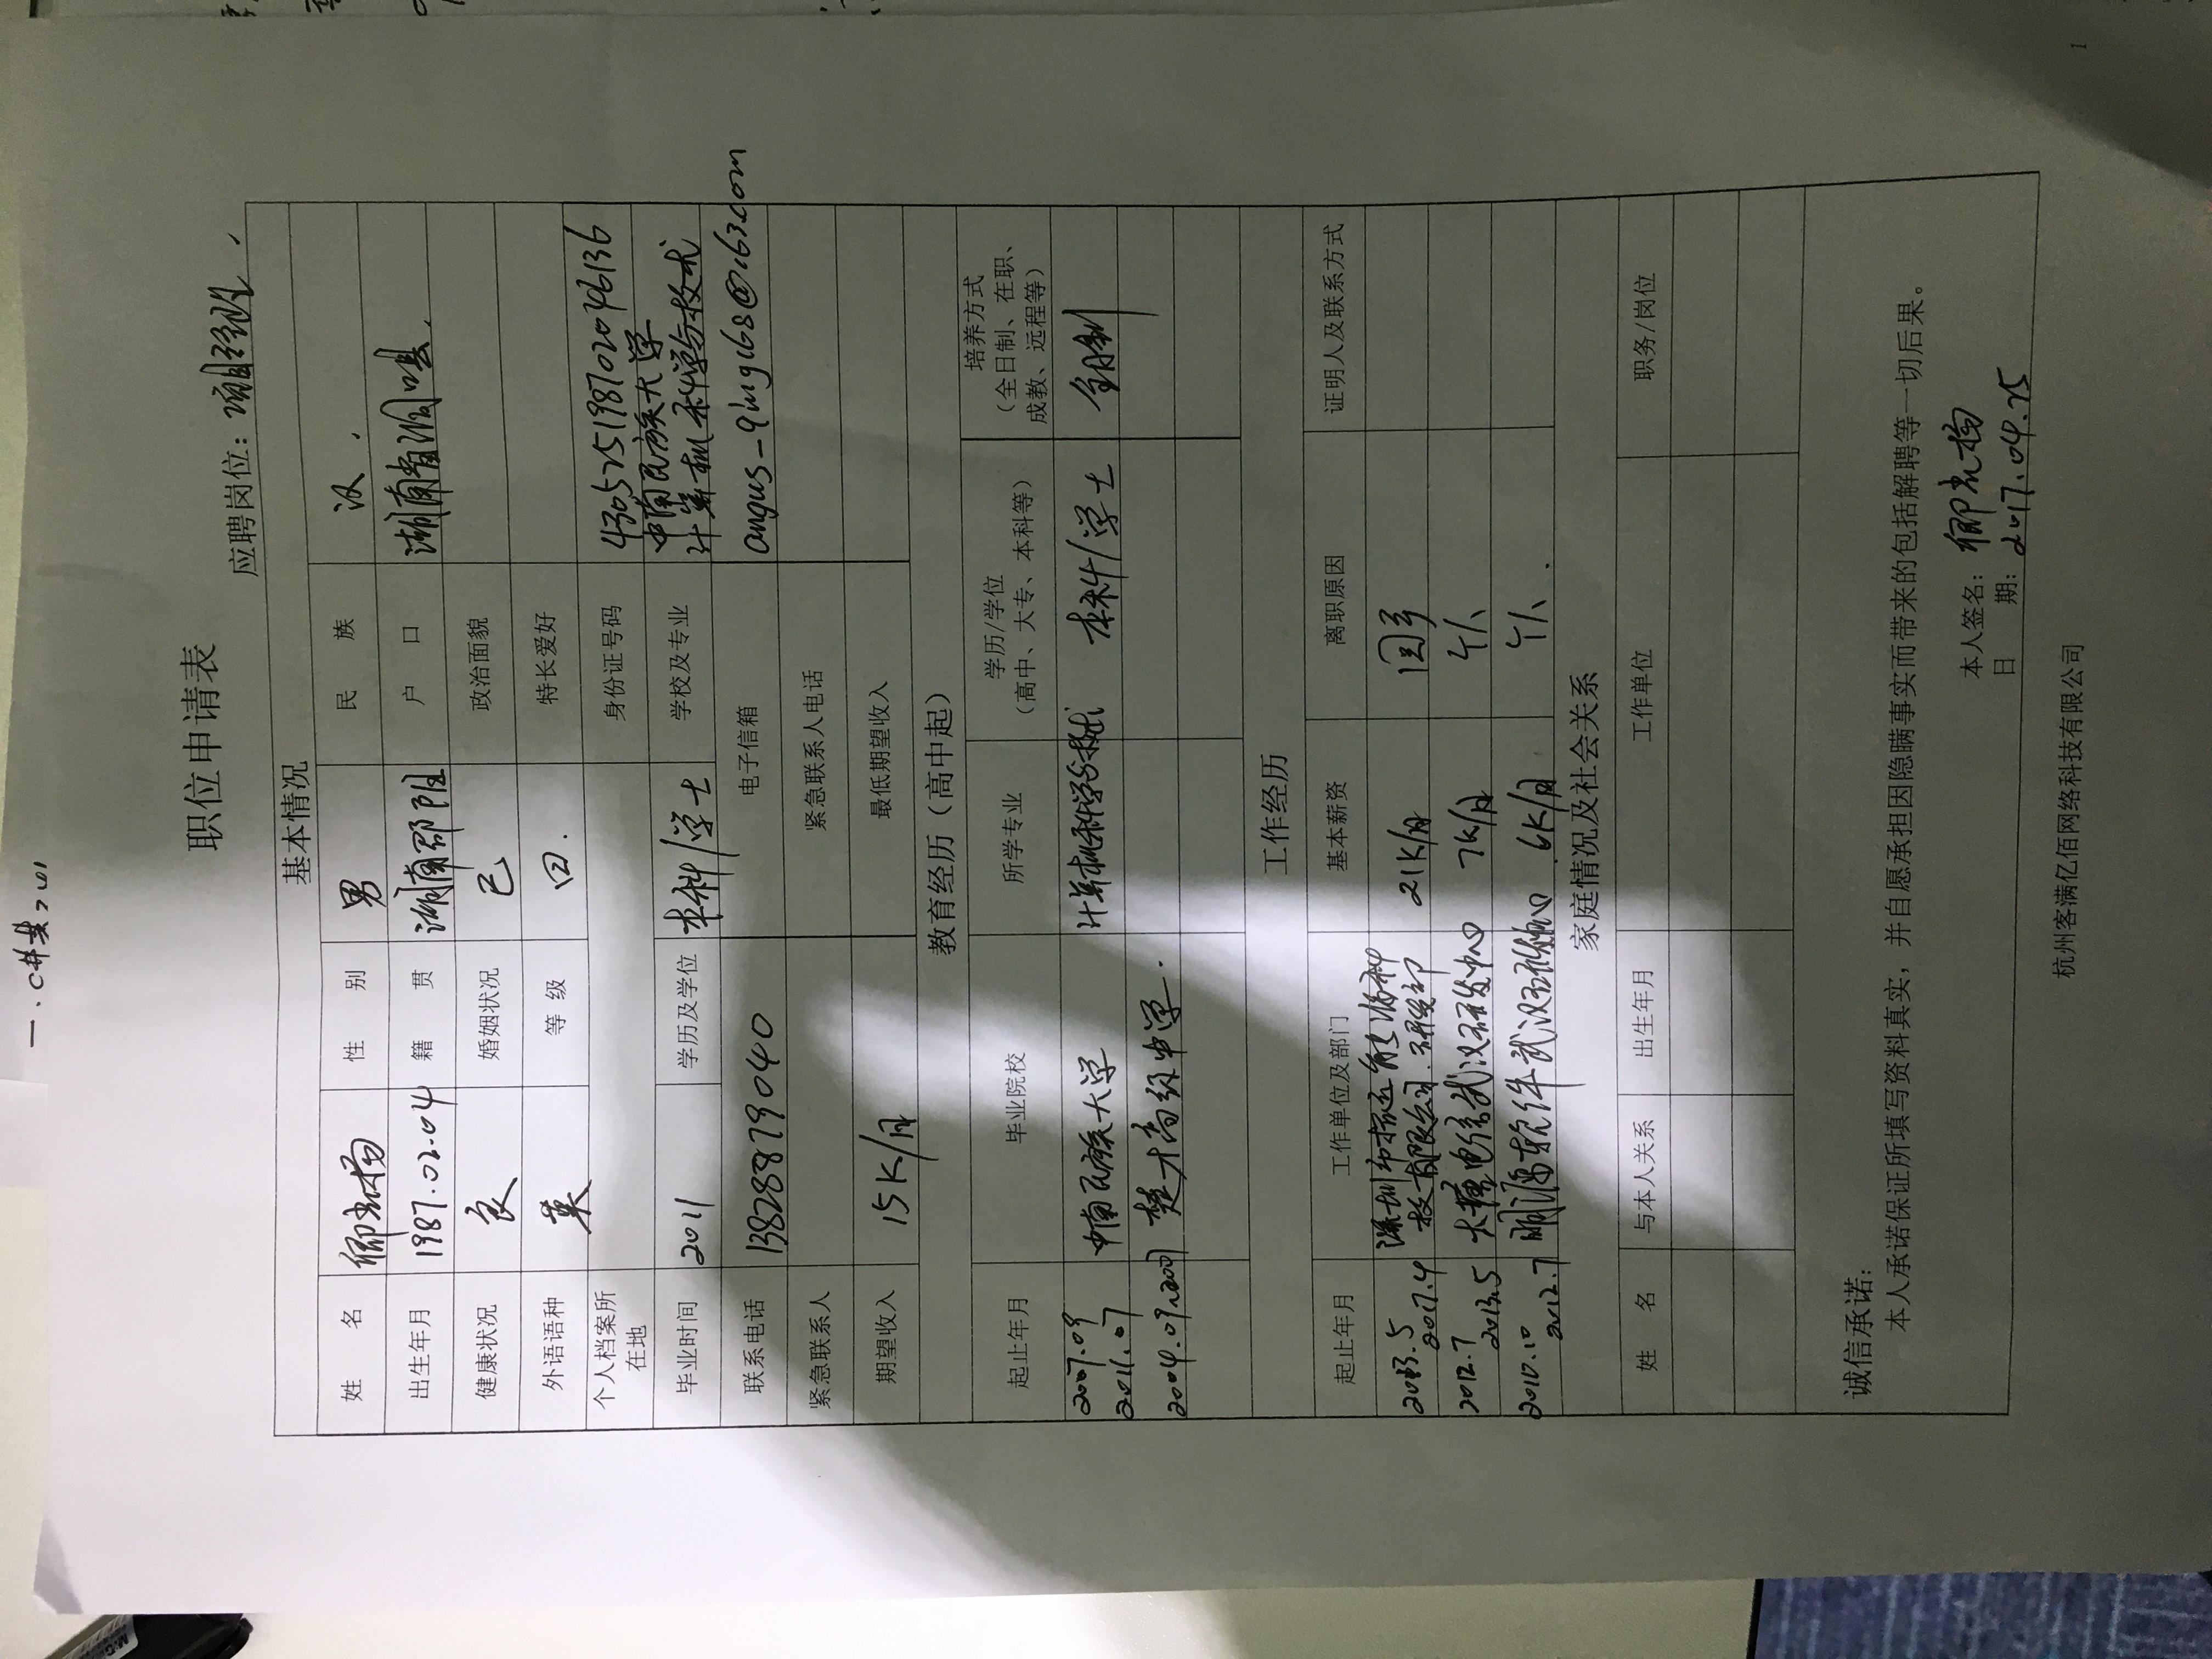 一.C井基
职位申请表
应聘岗位：项目经理
基本情况
姓 名 卿光杨 性 别 男 民 族 汉.
出生年月 1987.02.04 籍 贯 湖南邵阳 户 口 湖南省洞口县.
健康状况 良 婚姻状况 已 政治面貌
外语语种 英 等 级 四. 特长爱好
个人档案所
在地
身份证号码 430525198702046136
毕业时间 2011 学历及学位 本科/学士 学校及专业 中南民族大学
计算机科学与技术
联系电话 13828879040 电子信箱 angus_qing168@163.com
紧急联系人 紧急联系人电话
期望收入 15K/月 最低期望收入
教育经历（高中起）
起止年月 毕业院校 所学专业 学历/学位
（高中、大专、本科等）
培养方式
（全日制、在职、
成教、远程等）
2007.09
2011.07 中南民族大学 计算机科学与技术 本科/学士 全日制
2004.09~2007 楚才高级中学.
工作经历
起止年月 工作单位及部门 基本薪资 离职原因 证明人及联系方式
2013.5
2017.4 深圳市拓远能源科
技有限公司.研发部 21K/月 回乡
2012.7
2013.5 大唐电信武汉研发中心 7K/月 个人
2010.10
2012.7 明源软件武汉研发中心 6K/月 个人.
家庭情况及社会关系
姓 名 与本人关系 出生年月 工作单位 职务/岗位
诚信承诺：
本人承诺保证所填写资料真实，并自愿承担因隐瞒事实而带来的包括解聘等一切后果。
本人签名：卿光杨
日 期：2017.04.25
杭州客满亿佰网络科技有限公司
1